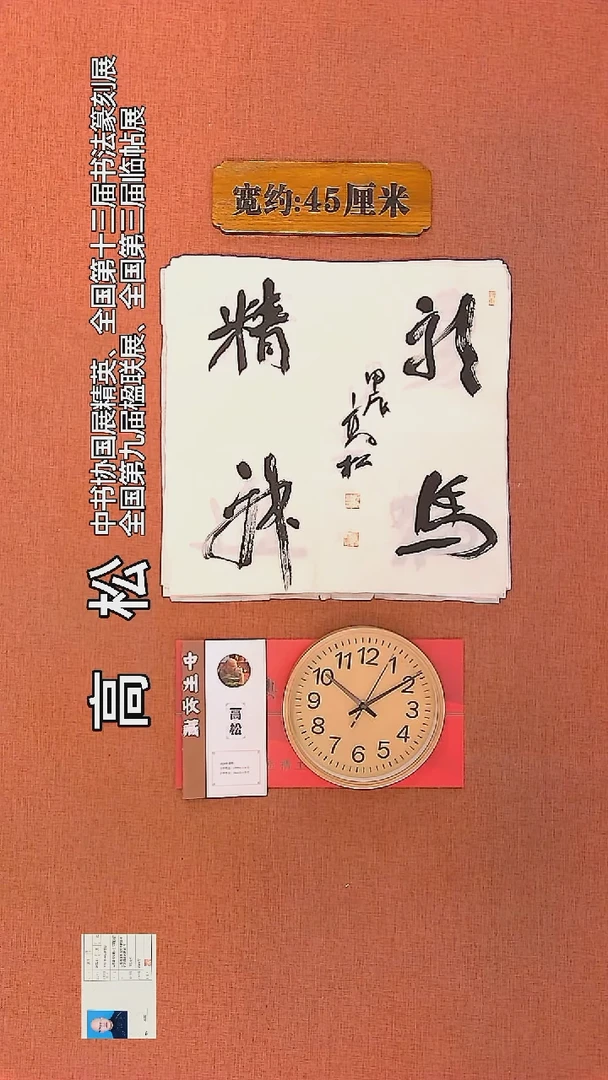 中书协国展精英、全国第十三届书法篆刻展
全国第九届楹联展、全国第三届临帖展
高 松
宽约:45厘米
龍馬
精神
甲辰
高松
高松
12
1
2
3
4
5
6
7
8
9
10
11